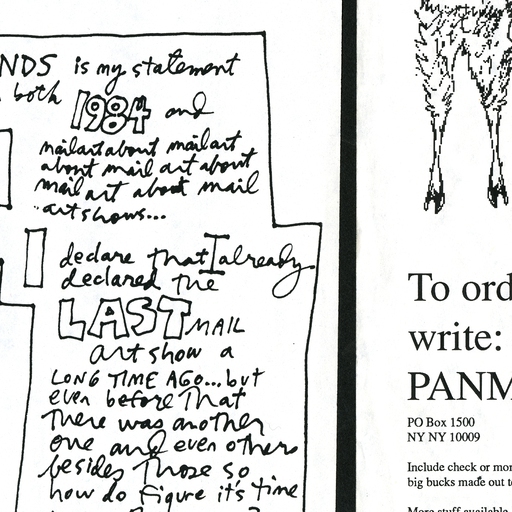 NDS is my statement
both
1984 and
mailart about mailart
about mail art about
mail art about mail
art shows...
I declare that I already
declared the
LAST MAIL
art show a
LONG TIME AGO...but
even before that
there was another
one and even others
besides those so
how do figure it's time
To ord
write:
PANM
PO Box 1500
NY NY 10009
Include check or mon
big bucks made out t
More stuff available